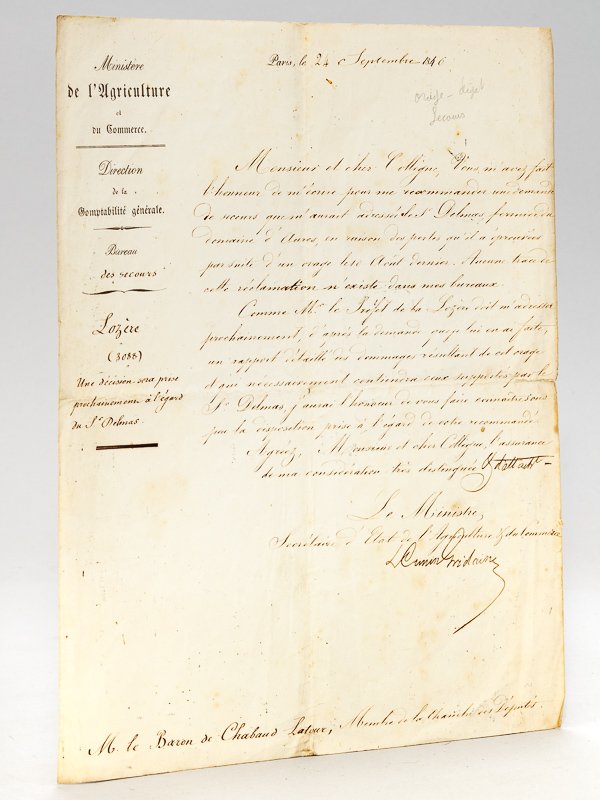 Ministère
de l'Agriculture
et
du Commerce.
Direction
de la
Comptabilité générale.
Bureau
des secours
Lozère
(3088)
Une décision sera prise
prochainement à l'égard
du Sr Delmas.
Paris, le 24 Septembre 1846
orage - dégât
Secours
Monsieur et cher Collègue, Vous m'avez fait
l'honneur de m'écrire pour me recommander une demande
de secours que m'aurait adressée le Sr Delmas, fermier du
domaine d'Aures, en raison des pertes qu'il a éprouvées
par suite d'un orage le 10 Août dernier. Aucune trace de
cette réclamation n'existe dans mes bureaux.
Comme Mr. le Préfet de la Lozère doit m'adresser
prochainement, d'après la demande que je lui en ai faite,
un rapport détaillé des dommages résultant de cet orage
et qui nécessairement contiendra ceux supportés par le
Sr Delmas, j'aurai l'honneur de vous faire connaître sous
peu la disposition prise à l'égard de votre recommandé.
Agréez, Monsieur et cher Collègue, l'assurance
de ma considération très distinguée
Le Ministre,
Secrétaire d'Etat de l'Agriculture & du Commerce
L Cunin Gridaine
M. le Baron de Chabaud Latour, Membre de la Chambre des Députés.